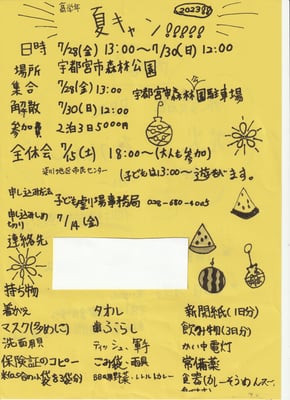 高学年
夏キャン!!!!!
2023
日時 7/28(金) 13:00〜7/30(日) 12:00
場所 宇都宮市森林公園
集合 7/28(金) 13:00
解散 7/30(日) 12:00
宇都宮市森林公園駐車場
参加費 2泊3日5000円
全体会 7/15(土) 18:00〜(大人も参加)
地区市民センター
(子どもは13:00〜遊びます。
申し込み方法 子ども劇場事務局 028-680-4005
申し込みしめきり 7/14(金)
連絡先
持ち物
着がえ タオル 新聞紙(1日分)
マスク(多めに) 歯ぶらし 飲み物(3日分)
洗面用具 ティッシュ・軍手 かい中電灯
保険証のコピー ごみ袋・雨具 常備薬
BBQ用野菜・レトルトカレー 食器(カレー,そうめん